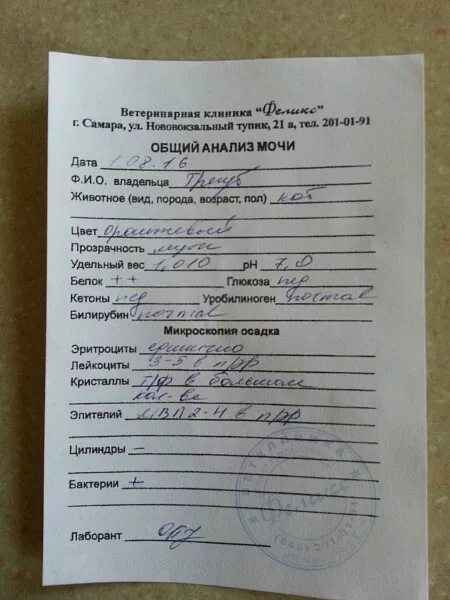 Ветеринарная клиника "Феликс"
г. Самара, ул. Нововокзальный тупик, 21 а, тел. 201-01-91
ОБЩИЙ АНАЛИЗ МОЧИ
Дата 1.08.16
Ф.И.О. владельца
Животное (вид, порода, возраст, пол) кот
Цвет оранжевый
Прозрачность мутн
Удельный вес 1,010 pH 7,0
Белок ++ Глюкоза нег
Кетоны нег Уробилиноген
Билирубин
Микроскопия осадка
Эритроциты единично
Лейкоциты 3-5 в п/зр
Кристаллы т/ф в большом
кол-ве
Эпителий МВП 2-4 в п/зр
Цилиндры –
Бактерии +
Лаборант
ВЕТКЛИНИКА
Феликс
(846) 201-01-91